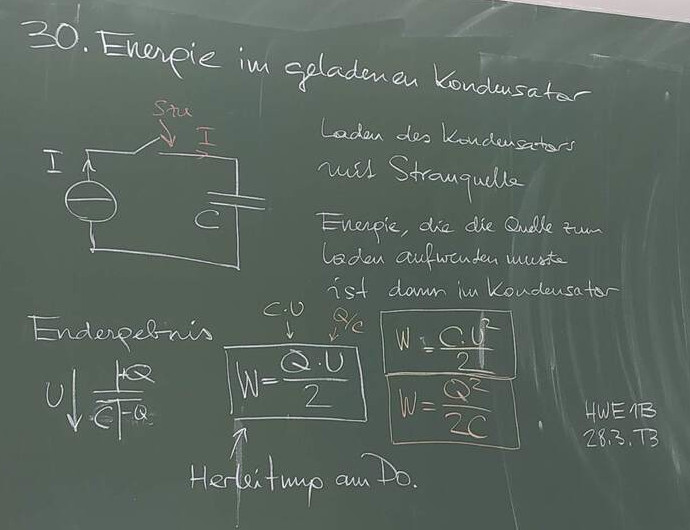 30. Energie im geladenen Kondensator
I
I
C
Laden des Kondensators
mit Stromquelle
Energie, die die Quelle zum
Laden aufwenden musste
ist dann im Kondensator
Endergebnis
U
+Q
C -Q
C·U
Q/C
W = Q·U / 2
W = C·U² / 2
W = Q² / 2C
Herleitung am Do.
HWE 1B
28.3. T3